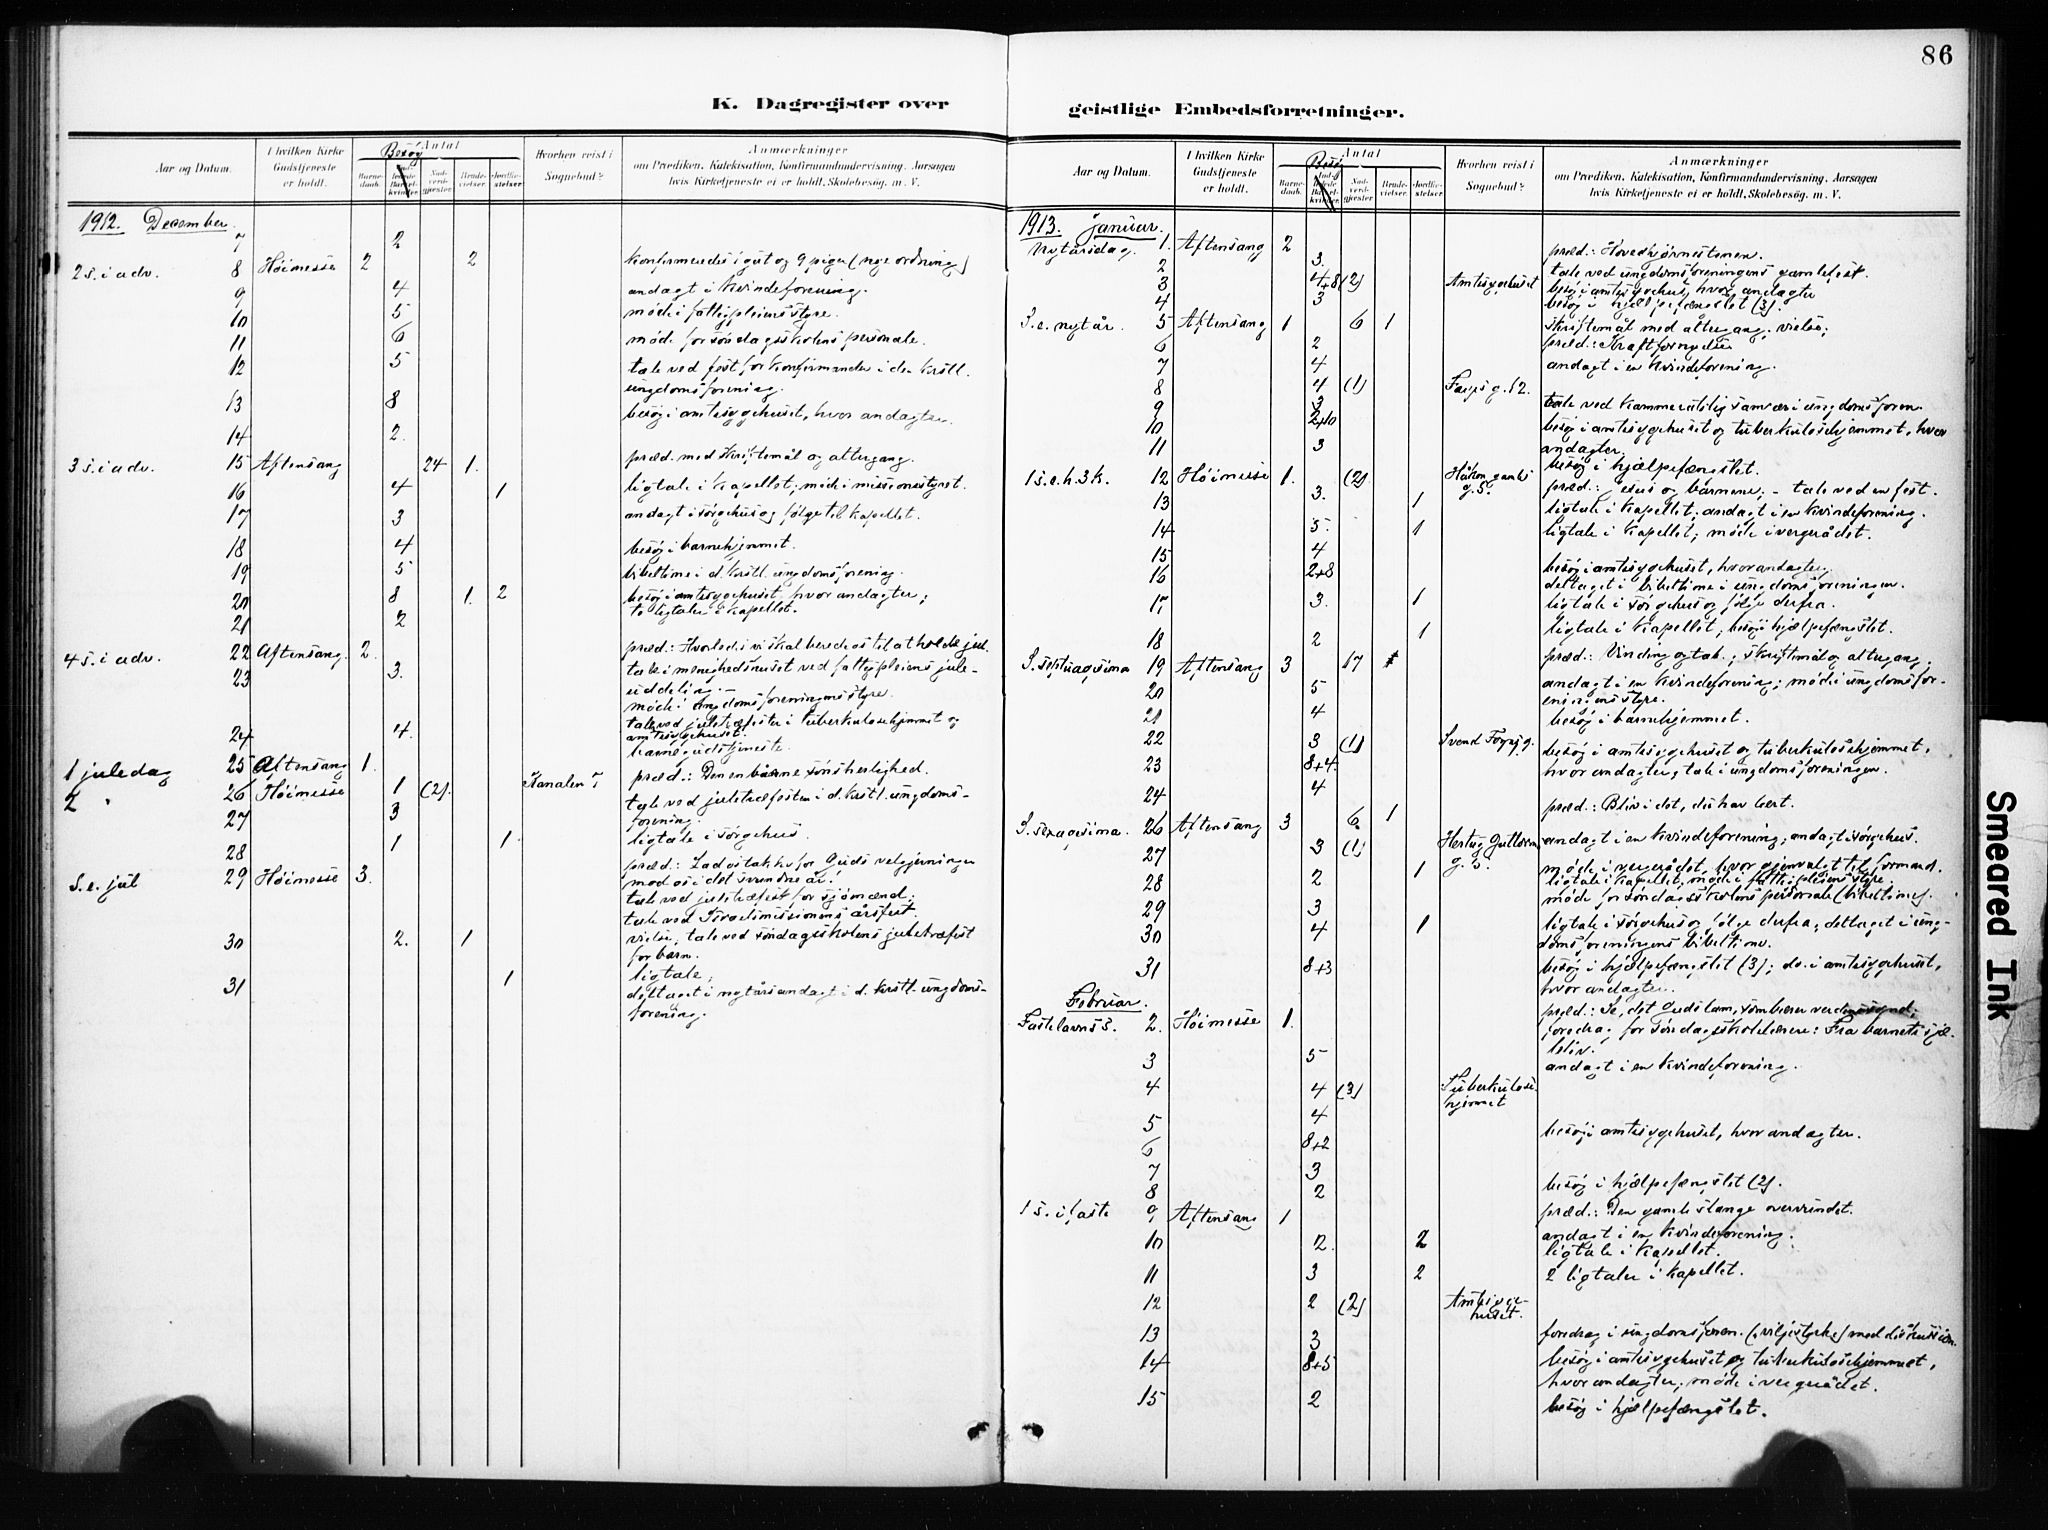 86
K. Dagregister over
geistlige Embedsforretninger.
Aar og Datum.
I hvilken Kirke Gudstjeneste er holdt.
Besøg
Antal
Barne-daab.
Nad-verd-gjester
Brude-vielser.
Jordfæ-stelser
Hvorhen reist i Sognebud?
Anmærkninger
om Prædiken, Katekisation, Konfirmandundervisning, Aarsagen
hvis Kirketjeneste ei er holdt, Skolebesøg. m. V.
1912. December.
7 2
2 s. i adv. 8 Høimesse 2 2 Konfirmerdes 1 gut og 9 piger (nye ordning)
9 4 andagt i kvindeforening.
10 5 møde i fattigpleiens styre.
11 6 møde for søndagsskolens personale.
12 5 tale ved fest for konfirmander i den kristl.
ungdomsforening.
13 8 besøg i amtssygehuset, hvor andagter.
14 2.
3 s. i adv. 15 Aftensang 24 1. præd. med skriftemål og altergang.
16 4 1 ligtale i kapellet; møde i missionsstyret.
17 3 andagt i sørgehus og følge til kapellet.
18 4 besøg i barnehjemmet.
19 5 bibeltime i d. kristl. ungdomsforening.
20 8 1. 2 besøg i amtssygehuset, hvor andagter;
to ligtaler i kapellet.
21 2
4 s. i adv. 22 Aftensang. 2. præd.: Hvorledes vi skal beredes til at holde jul.
23 3. tale i menighedshuset ved fattigpleiens jule-
uddeling. –
møde i ungdomsforeningens styre.
24 4. tale ved juletræfester i Tuberkulosehjemmet og
amtssygehuset.
barnegudstjeneste.
1 juledag 25 Aftensang 1. præd.: Den enbårne søns herlighed.
2 " 26 Høimesse 1 (2). Kanalen 7 tale ved juletræfesten i d. kristl. ungdoms-
forening.
27 3
28 1 1. ligtale i sørgehus.
S. e. jul 29 Høimesse 3. præd.: Lad os takke for Guds velgjerninger
mod os i det svundne år!
tale ved juletræfest for sjømænd;
tale ved Israelsmissionens årsfest.
30 2. 1 vielse; tale ved søndagsskolens juletræfest
for barn.
31 1 ligtale;
deltaget i nytårsandagt i d. kristl. ungdoms-
forening.
Aar og Datum.
I hvilken Kirke Gudstjeneste er holdt.
Besøg
Antal
Barne-daab.
Nad-verd-gjester
Brude-vielser.
Jordfæ-stelser
Hvorhen reist i Sognebud?
Anmærkninger
om Prædiken, Katekisation, Konfirmandundervisning, Aarsagen
hvis Kirketjeneste ei er holdt, Skolebesøg. m. V.
1913. Januar.
Nytårsdag. 1. Aftensang 2 præd.: Hovedhjørnestenen.
2 3. tale ved ungdomsforeningens gamlefest.
3 4+8 (2) Amtssygehuset besøg i amtssygehus, hvor andagter
4 3 besøg i hjælpefængslet (3).
S. e. nytår. 5 Aftensang 1 6 1 skriftemål med altergang, vielse;
præd.: Kraftfornyelse
6 2
7 4 andagt i en kvindeforening.
8 4 (1) g. 12.
9 3 tale ved kammeratslig samvær i ungdomsforen.
10 2+10 besøg i amtssygehuset og tuberkulosehjemmet, hvor
andagter.
11 3 besøg i hjælpefængslet.
1 s. e. h. 3 k. 12 Høimesse 1. (2) Håkon gamles g. 5. præd.: Jesus og børnene; – tale ved en fest.
13 3. 1 ligtale i kapellet; andagt i en kvindeforening.
14 5. 1 ligtale i kapellet; møde i vergerådet.
15 4
16 2+8 besøg i amtssygehuset, hvor andagter;
deltaget i bibeltime i ungdomsforeningen.
17 3. 1 ligtale i sørgehus og følge derfra.
18 2 1 ligtale i kapellet; besøg i hjælpefængslet.
S. septuagesima 19 Aftensang 3 17 præd.: Vinding og tab; skriftemål og altergang.
20 5 andagt i en kvindeforening; møde i ungdomsfor-
eningens styre.
21 4 besøg i barnehjemmet.
22 3 (1) Svend Foyns g.
23 8+4. besøg i amtssygehuset og tuberkulosehjemmet,
hvor andagter; tale i ungdomsforeningen.
24 4
S. sexagesima. 26 Aftensang 3 6 1 præd.: Bliv i det, du har lært.
27 3 (1) Hertug Guttorms g. 2. andagt i en kvindeforening; andagt i sørgehus.
28 2 1 møde i vergerådet, hvor gjenvalgt til formand.
ligtale i kapellet, møde i fattigpleiens styre.
29 3 møde for søndagsskolens personale (bibeltime).
30 4 1 ligtale i sørgehus og følge derfra; deltaget i ung-
domsforeningens bibeltime.
31 8+3 besøg i hjælpefængslet (3); do. i amtssygehuset,
hvor andagter.
Februar.
Fastelavns S. 2. Høimesse 1. præd.: Se, det Guds lam, som bærer verdens synd;
foredrag for søndagsskolelærere: Fra barnets sjæ-
leliv.
3 5 andagt i en kvindeforening.
4 4 (3) Tuberkulose-hjemmet
5 4
6 8+2 besøg i amtssygehuset, hvor andagter.
7 3
8 2 besøg i hjælpefængslet (2).
1 s. i faste 9 Aftensang 1 præd.: Den gamle slange overvindet.
10 2. 2 andagt i en kvindeforening;
ligtale i kapellet.
11 3 2 2 ligtaler i kapellet.
12 2 (2) Amtssyge-huset.
13 3 foredrag i ungdomsforen. (viljestyrke) med diskussion.
14 8+5 besøg i amtssygehuset og tuberkulosehjemmet,
hvor andagter; møde i vergerådet.
15 2 besøg i hjælpefængslet.
Smeared Ink